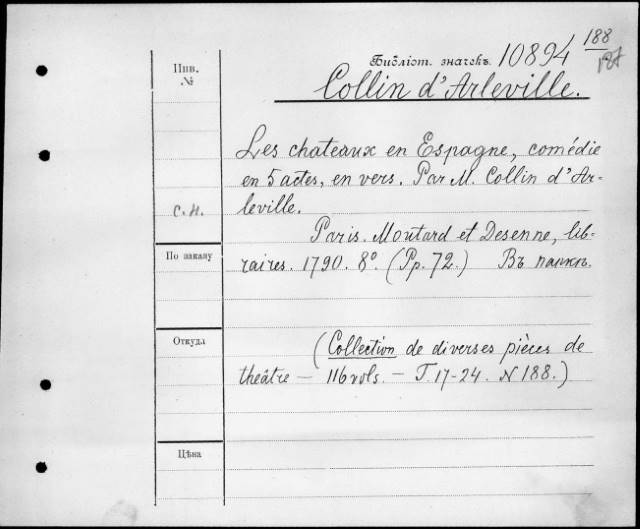 188
Инв.
№
Библіот. значекъ 10894
188
Collin d'Arleville.
Les chateaux en Espagne, comédie
en 5 actes, en vers. Par M. Collin d'Ar-
leville.
С.Н.
Paris. Moutard et Desenne, lib-
raires. 1790. 8°. (Pp. 72.) Въ папкѣ.
По заказу
Откуда
(Collection de diverses pièces de
théâtre — 116 vols. — T. 17-24. N 188.)
Цѣна